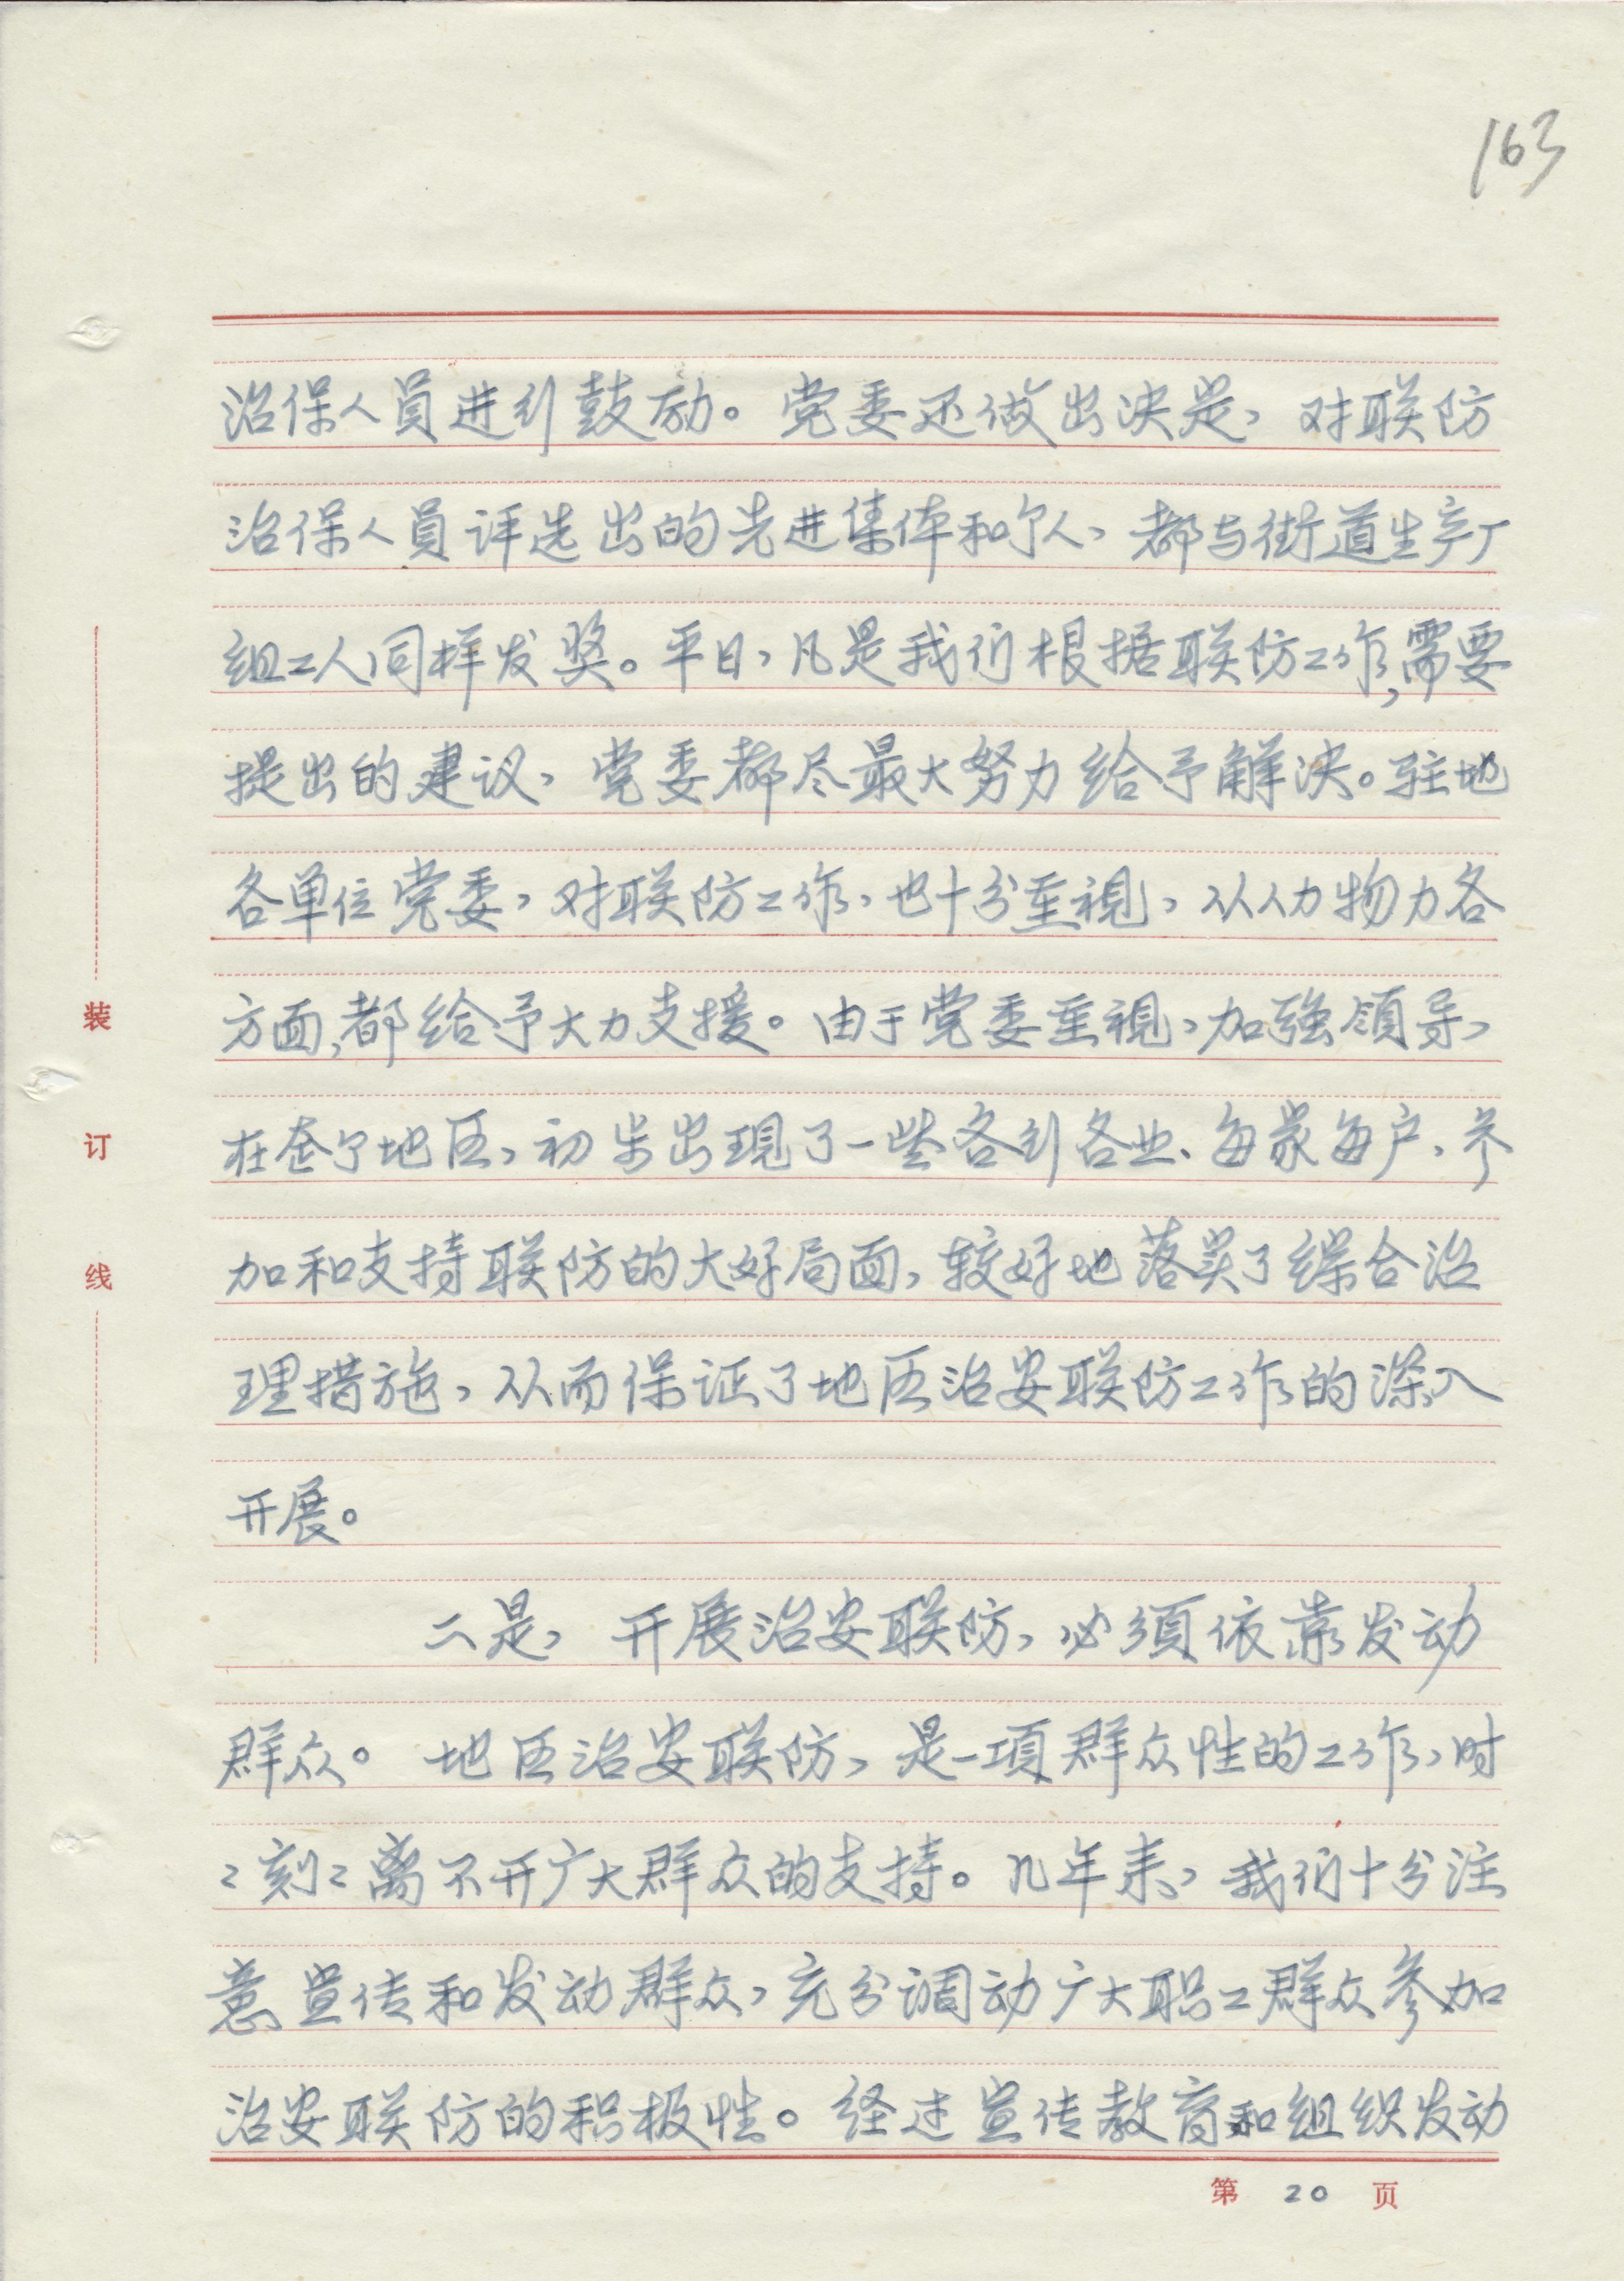 163
治保人员进行鼓励。党委还做出决定，对联防
治保人员评选出的先进集体和个人，都与街道生产厂
组工人同样发奖。平日，凡是我们根据联防工作，需要
提出的建议，党委都尽最大努力给予解决。驻地
各单位党委，对联防工作，也十分重視，从人力物力各
方面，都给予大力支援。由于党委重視，加强領导，
在这个地区，初步出現了一些各行各业、每家每户、参
加和支持联防的大好局面，较好地落实了综合治
理措施，从而保证了地区治安联防工作的深入
开展。
二是，开展治安联防，必須依靠发动
群众。地区治安联防，是一項群众性的工作，时
〻刻〻离不开广大群众的支持。几年来，我们十分注
意宣传和发动群众，充分调动广大职工群众参加
治安联防的积极性。经过宣传教育和组织发动
装
订
线
第 20 页